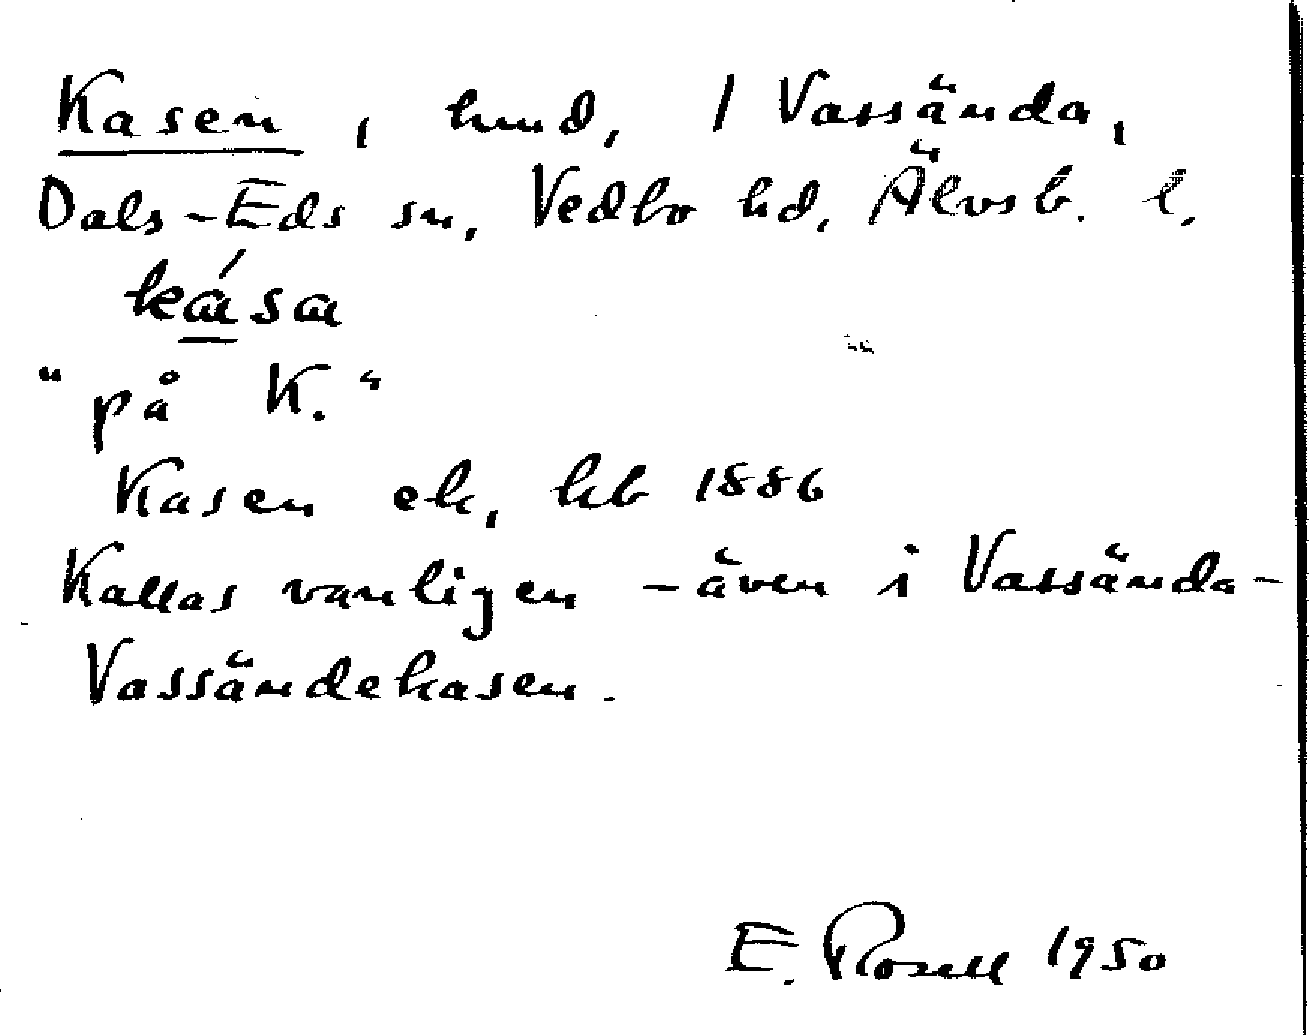 Kasen, hmd, 1 Vassända,
Dals-Eds sn, Vedbo hd. Älvsb. l.
kása
"på K."
Kasen ek, kb 1886
Kallas vanligen - även i Vassända -
Vassändekasen.
E. Rosell 1950